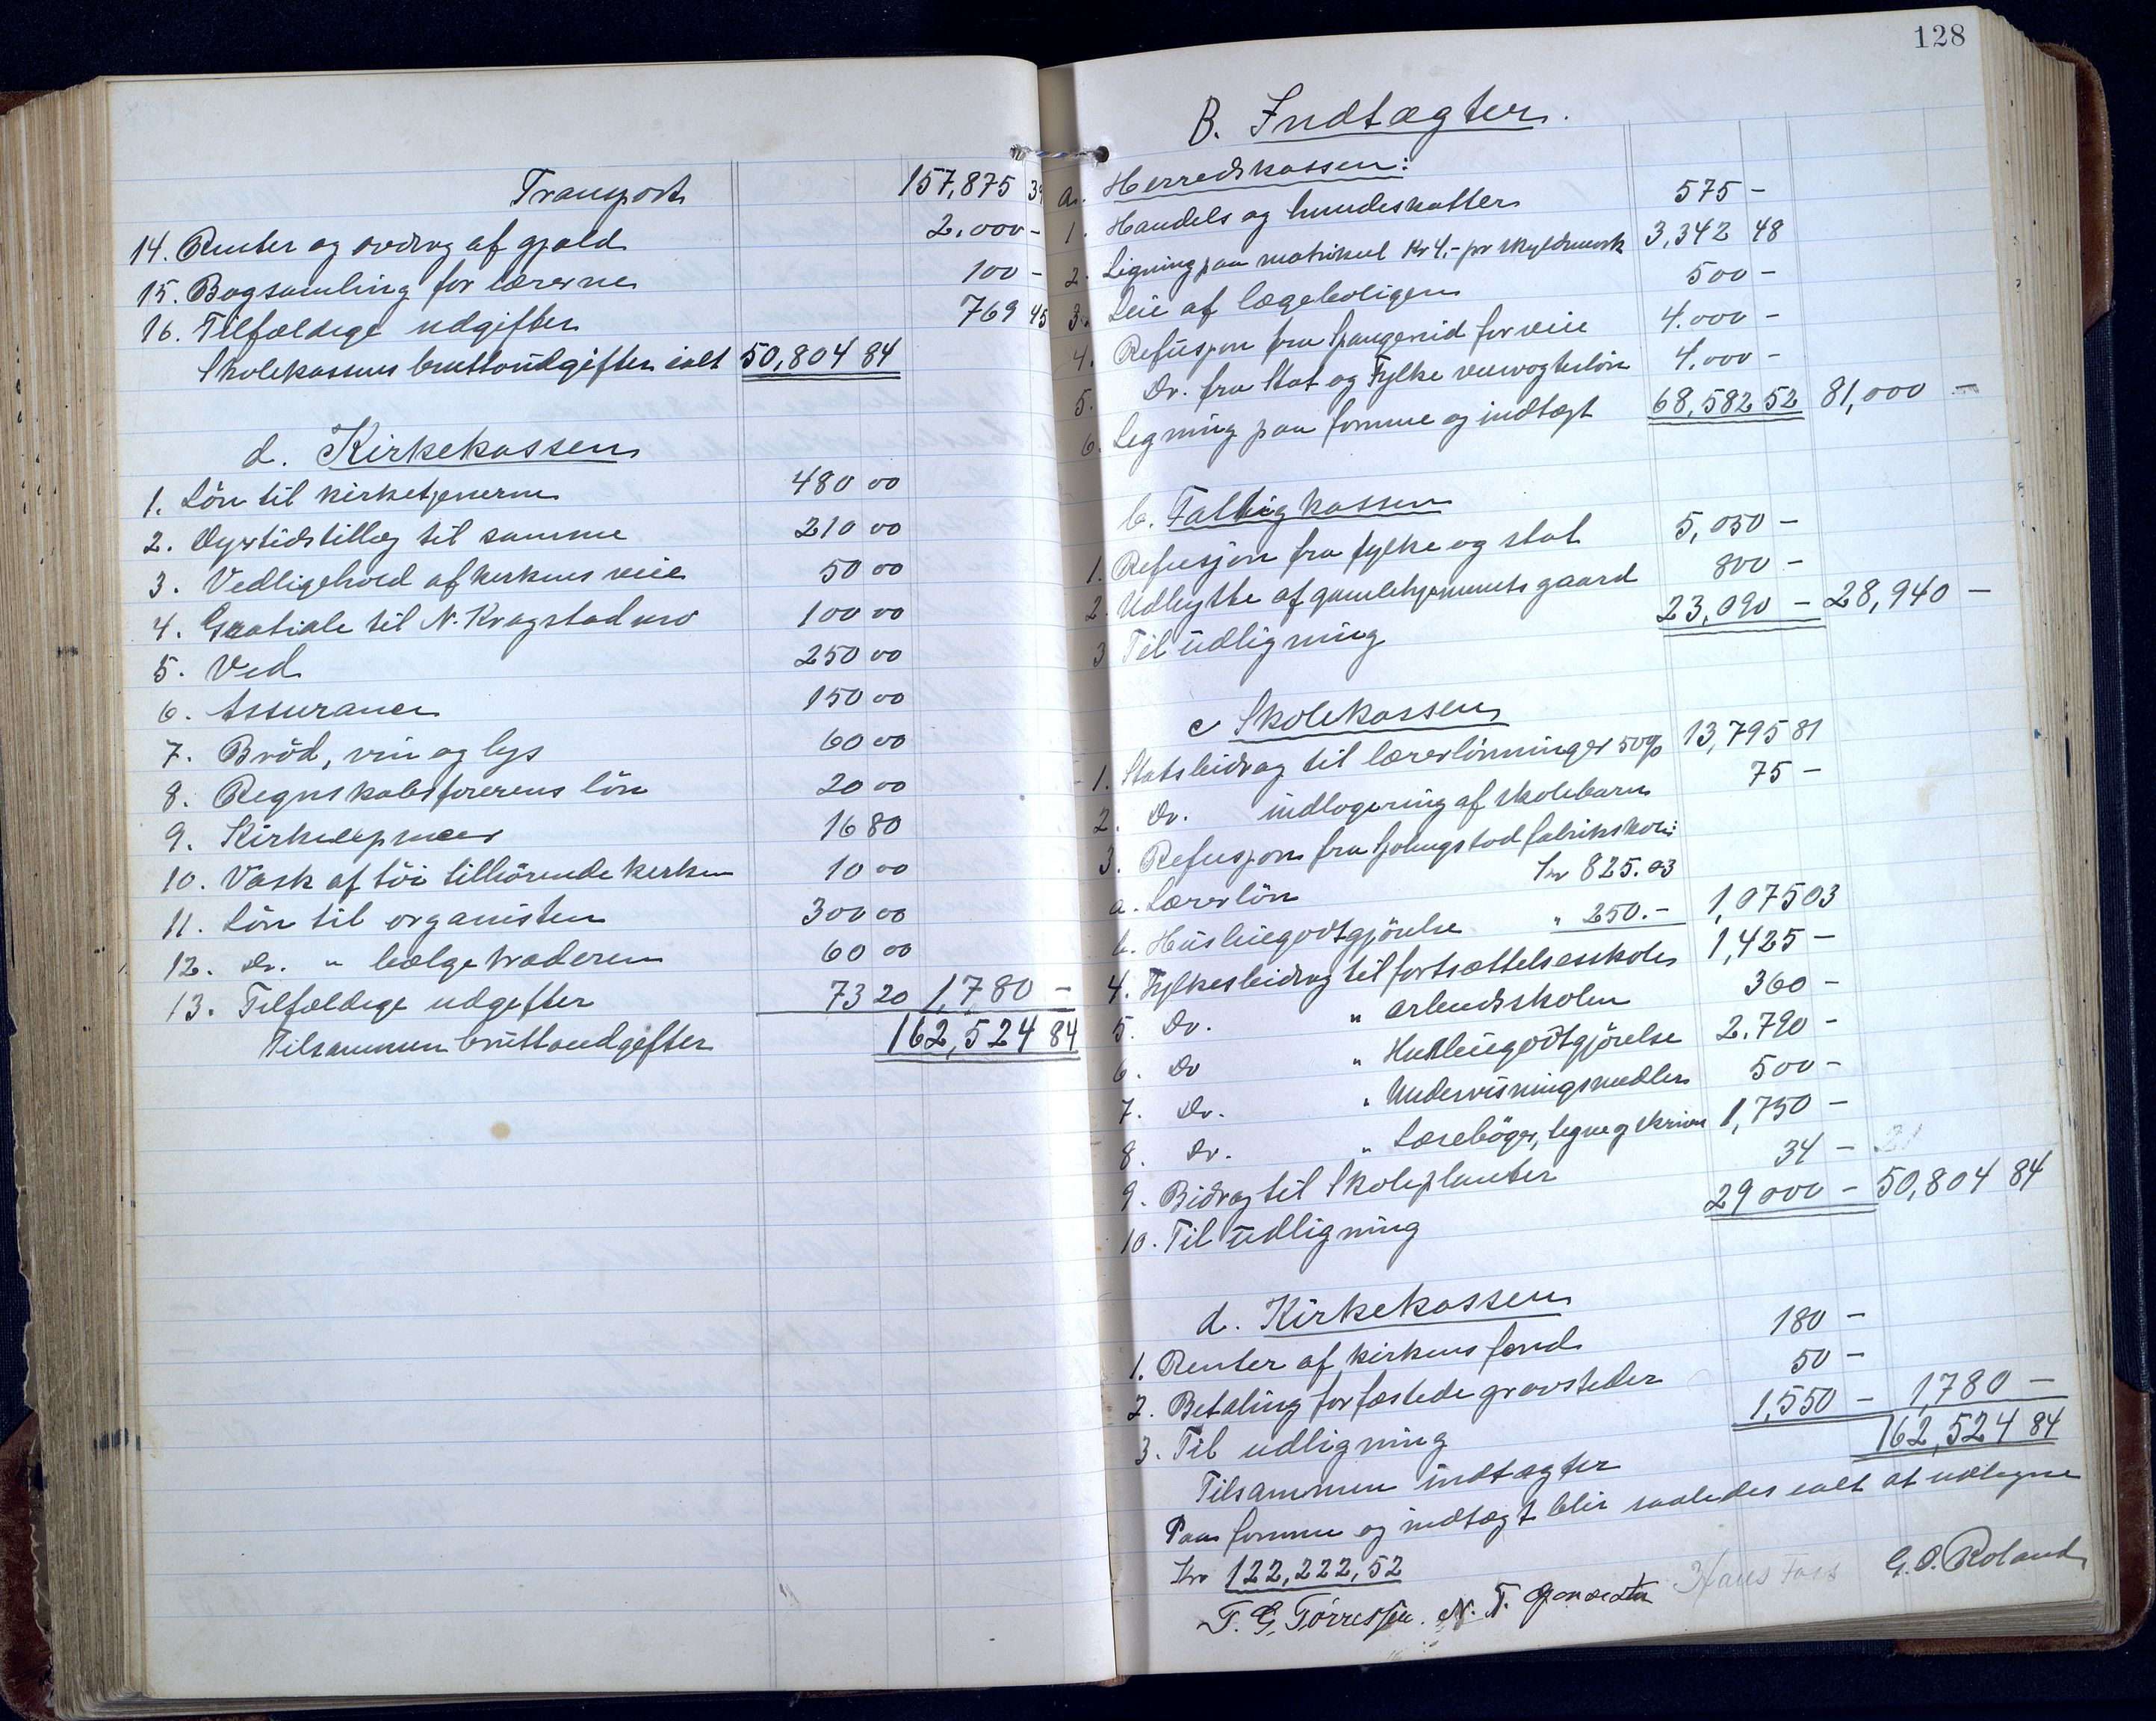 Transport 157,875 39
14. Renter og avdrag af gjæld 2.000 -
15. Bogsamling for lærerne 100 -
16. Tilfældige udgifter 769 45
Skolekassens bruttoudgifter ialt 50,804 84
d. Kirkekassen
1. Lön til kirketjenerne 480 00
2. Dyrtidstillæg til samme 210 00
3. Vedligehold af kirkens veie 50 00
4. Gratiale til N. Kragstad 100 00
5. Ved 250 00
6. Assurance 150 00
7. Bröd, vin og lys 60 00
8. Regnskabsförerens lön 20 00
9. 16 80
10. Vask af töi tilhörende kirken 10 00
11. Lön til organisten 300 00
12. Do. " bælgetræderen 60 00
13. Tilfældige udgifter 73 20 1,780 -
Tilsammen bruttoudgifter 162,524 84
128
B. Indtægter.
a. Herredskassen:
1. Handels og hundeskatter 575 -
2. Ligning paa matrikul Kr 4,- pr skyldmark 3,342 48
3. Leie af lægeboligen 500 -
4. Refusjon fra Spangereid for veie 4.000 -
5. Do. fra Stat og Fylke veivogterlön 4.000 -
6. Ligning paa formue og indtægt 68,582 52 81,000 -
b. Fattigkassen
1. Refusjon fra fylke og stat 5,050 -
2. Udbytte af gamlehjemmets gaard 800 -
3 Til udligning 23,090 - 28,940 -
c Skolekassen
1. Statsbidrag til lærerlönninger 50% 13,795 81
2. Do. indlogering af skolebarn 75 -
3. Refusjon fra fabrikskole:
a. Lærerlön Kr 825.03
b. Husleiegodtgjörelse " 250.- 1,075 03
4. Fylkesbidrag til fortsættelsesskole 1,425 -
5. Do. " arbeidsskolen 360 -
6. Do " Husleiegodtgjörelse 2.790 -
7. Do. " Undervisningsmidler 500 -
8. Do. " Læseböger, tegne og skrive 1,750 -
9. Bidrag til Skoleplanter 34 -
10. Til udligning 29000 - 50,804 84
d. Kirkekassen
1. Renter af kirkens fond 180 -
2. Betaling for fæstede gravsteder 50 -
3. Til udligning 1,550 - 1,780 -
Tilsammen indtægter 162,524 84
Paa formue og indtægt blir saaledes ialt at udligne
Kr 122,222,52
T. G. Törressen. N. T. Hans Foss G. O. Roland